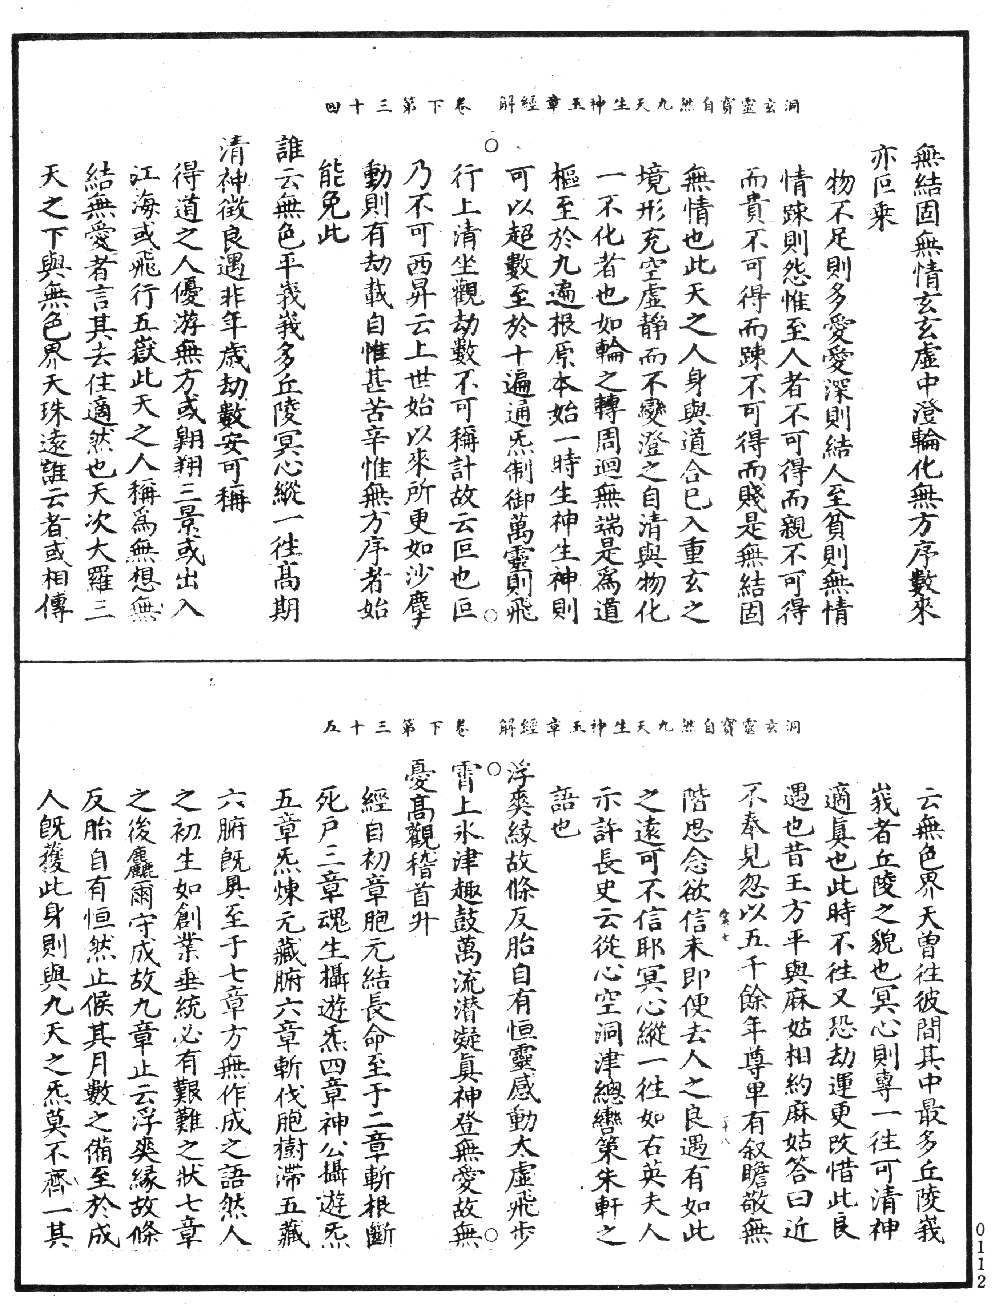 洞玄靈寶自然九天生神玉章經解　卷下第三十四
無結固無情玄玄虛中澄輪化無方序數來
亦叵乘
物不足則多愛愛深則結人至貧則無情
情踈則怨惟至人者不可得而親不可得
而貴不可得而踈不可得而賤是無結固
無情也此天之人身與道合已入重玄之
境形充空虛靜而不變澄之自清與物化
一不化者也如輪之轉周迴無端是爲道
樞至於九遍根原本始一時生神生神則
可以超數至於十遍通炁制御萬靈則飛
行上清坐觀劫數不可稱計故云叵也叵
乃不可西昇云上世始以來所更如沙塵
動則有劫載自惟甚苦辛惟無方序者始
能免此
誰云無色平峩峩多丘陵冥心縱一徃高期
清神徵良遇非年歲劫數安可稱
得道之人優游無方或翺翔三景或出入
江海或飛行五嶽此天之人稱爲無想無
結無愛者言其去住適然也天次大羅三
天之下與無色界天殊遠誰云者或相傳
洞玄靈寶自然九天生神玉章經解　卷下第三十五
云無色界天曾徃彼間其中最多丘陵峩
峩者丘陵之貌也冥心則專一徃可清神
適眞也此時不徃又恐劫運更改惜此良
遇也昔王方平與麻姑相約麻姑答曰近
不奉見忽以五千餘年尊卑有叙瞻敬無
階思念欲信未即便去人之良遇有如此
之遠可不信耶冥心縱一徃如右英夫人
示許長史云從心空洞津總轡策朱軒之
語也
浮爽緣故條反胎自有恒靈感動太虛飛步
霄上氷津趣鼓萬流潜凝眞神登無愛故無
憂高觀稽首升
經自初章胞元結長命至于二章斬根斷
死戶三章魂生攝遊炁四章神公攝遊炁
五章炁煉元藏腑六章斬伐胞樹滯五藏
六腑旣具至于七章方無作成之語然人
之初生如創業垂統必有艱難之狀七章
之後麤爾守成故九章止云浮爽緣故條
反胎自有恒然止候其月數之備至於成
人旣獲此身則與九天之炁莫不齊一其
0112